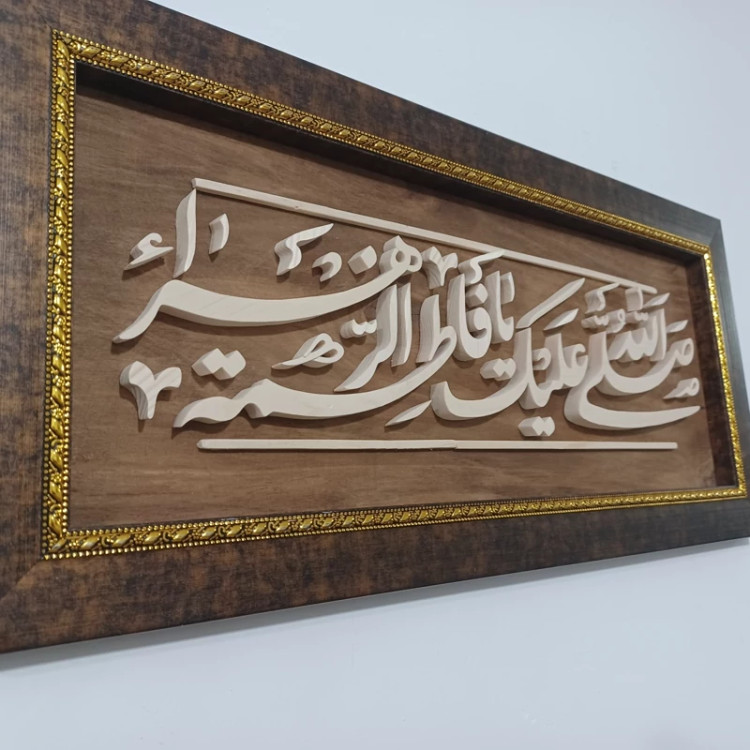 صَلَّی اللهُ عَلَیْکِ یا فاطِمَةُ الزَّهْراءُ